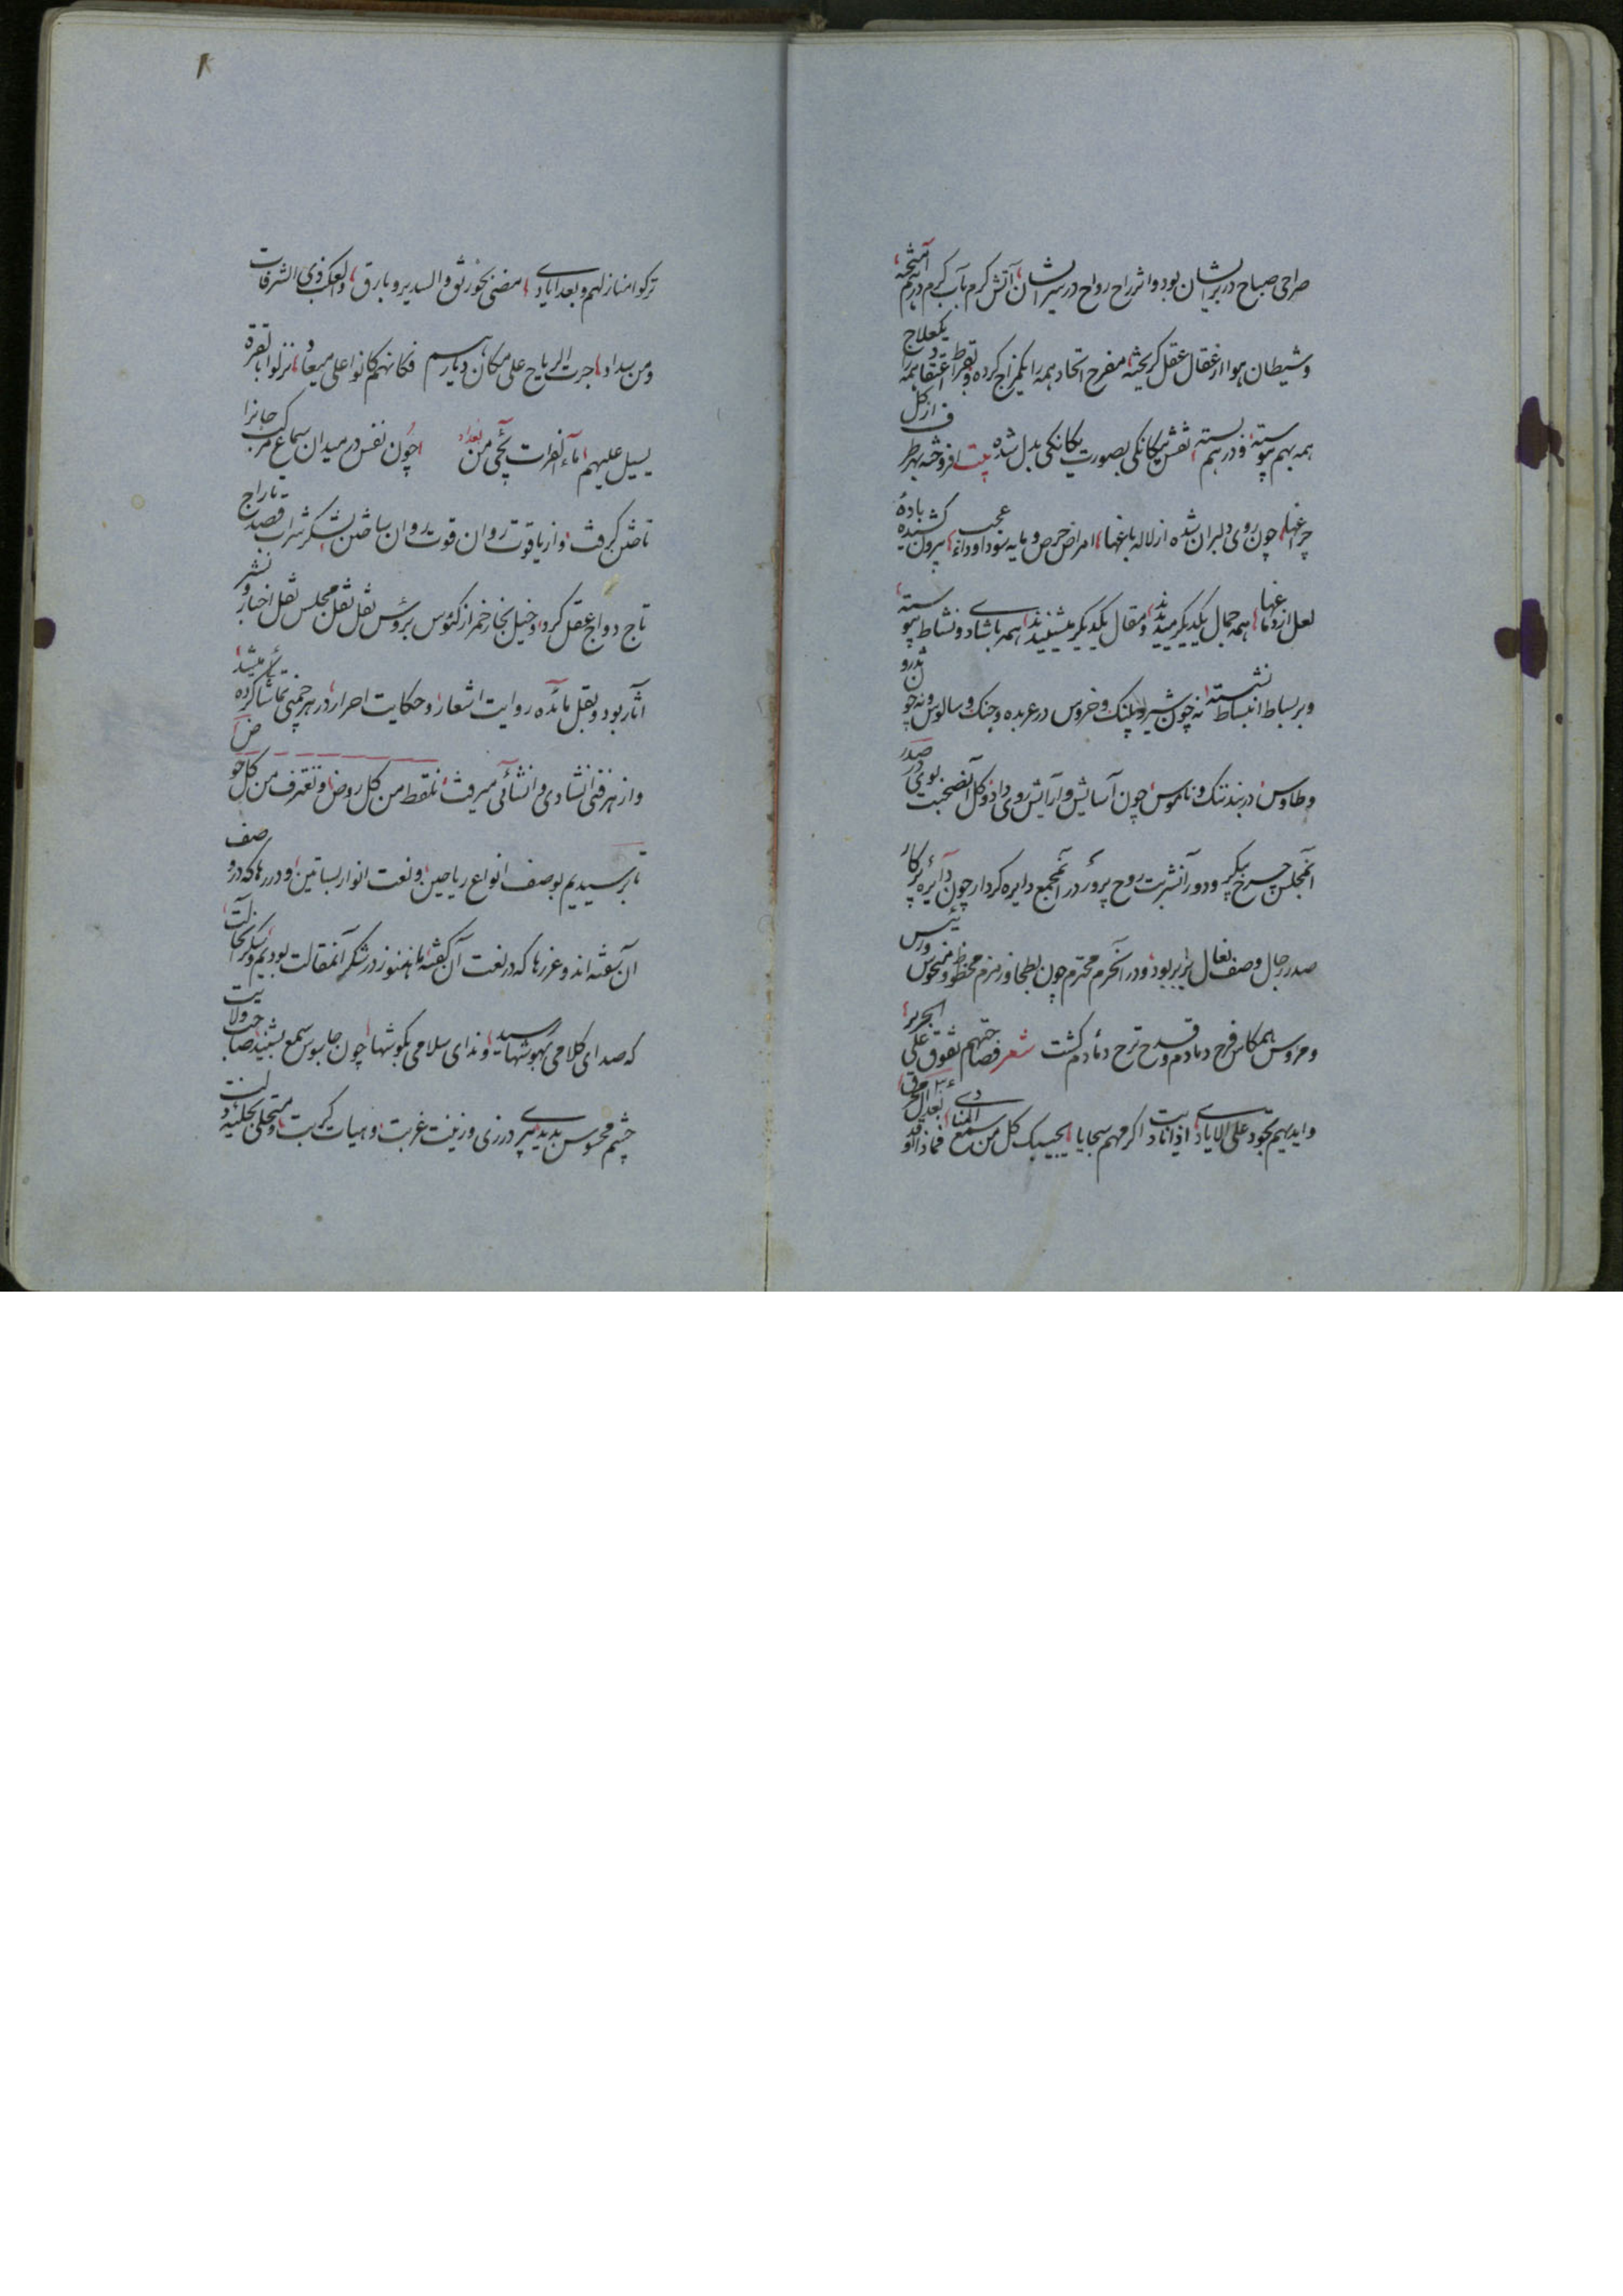 صراحی صباح در بر ایشان بود و اثر راح رواح در سر ایشان آتش کرم بآب کرم درهم آمیخته
و شیطان هوا از عقال عقل کریخته مفرح اتحاد همه را یکمزاج کرده و تفریط اعتقاد همه را یکعلاج
همه بهم پیوسته و در هم بسته نقش بیکانکی بصورت یکانکی بدل شده بیت افروخته بهر طرف از کل
چراغها چون روی دلبران شده از لاله باغها امراض حرص و مایه سودا و داء عجب بیرون کشیده باده
لعل از دماغها همه جمال یکدیکر میدیدند و مقال یکدیکر میشنیدند همه با شادی و نشاط پیوسته
و بر بساط انبساط نشسته نه چون شیر و پلنک و خروس در عربده و جنک و سالوس و نه چون تذرو
و طاوس در بند ننک و ناموس چون آسایش و آرایش روی داد و کل آنصحبت بوی در صدر
آنمجلس چرخ پیکر و دور آنشربت روح پرور در آنمجمع دایره کردار چون دایره پرکار
صدر رجال و صف نعال برابر بود و در آنحرم محترم چون بطحا و زمزم محظوظ و منحوس و رئیس
و مرؤس همکاس فرح دمادم و قدح ترح دمادم کشت شعر فصاحتهم تفوق علی الجریر
و ایدیهم تجود علی الایادی اذا نادیت اکرمهم سجایا یجیبک کل من سمع المنادی فماذا بعد آل محرق
ترکوا منازلهم و بعد ایاد مضی بخورنق و السدیر و بارق و الکعب ذی الشرفات
و من سداد جرت الریاح علی مکان دیارهم فکانهم کانوا علی میعاد نزلوا بانقرة
یسیل علیهم ماء الفرات یجی من بغداد چون نفس در میدان سماع مرکب جانرا
تاختن کرفت و از یاقوت روان قوت روان ساختن لشکر شراب قصد تاراج
تاج و دواج عقل کرد و خیل بخار خمر از کئوس برؤس نقل نقل مجلس نقل اخبار و نشر
آثار بود و بقل مائده روایت اشعار و حکایت احرار در هر چمنی تماشا کرده میشد
و از هر فنی انشادی و انشائی میرفت نلتقط من کل روض و نغترف من کل حوض
تا برسیدیم بوصف انواع ریاحین و نعت انوار بساتین و دررها که در وصف
آن سفته اند و غررها که در نعت آن کفته ما هنوز در شکر آنمقالت بودیم
که صدای کلامی بهوشها رسید و ندای سلامی بکوشها چون جاسوس سمع بشنید صاحب ولایت
چشم محسوس بدید پیری در زی و زینت غربت و هیات کربت